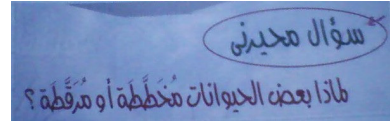 سؤال محيرني
لماذا بعض الحيوانات مُخَطَّطَة أو مُرَقَّطَة ؟